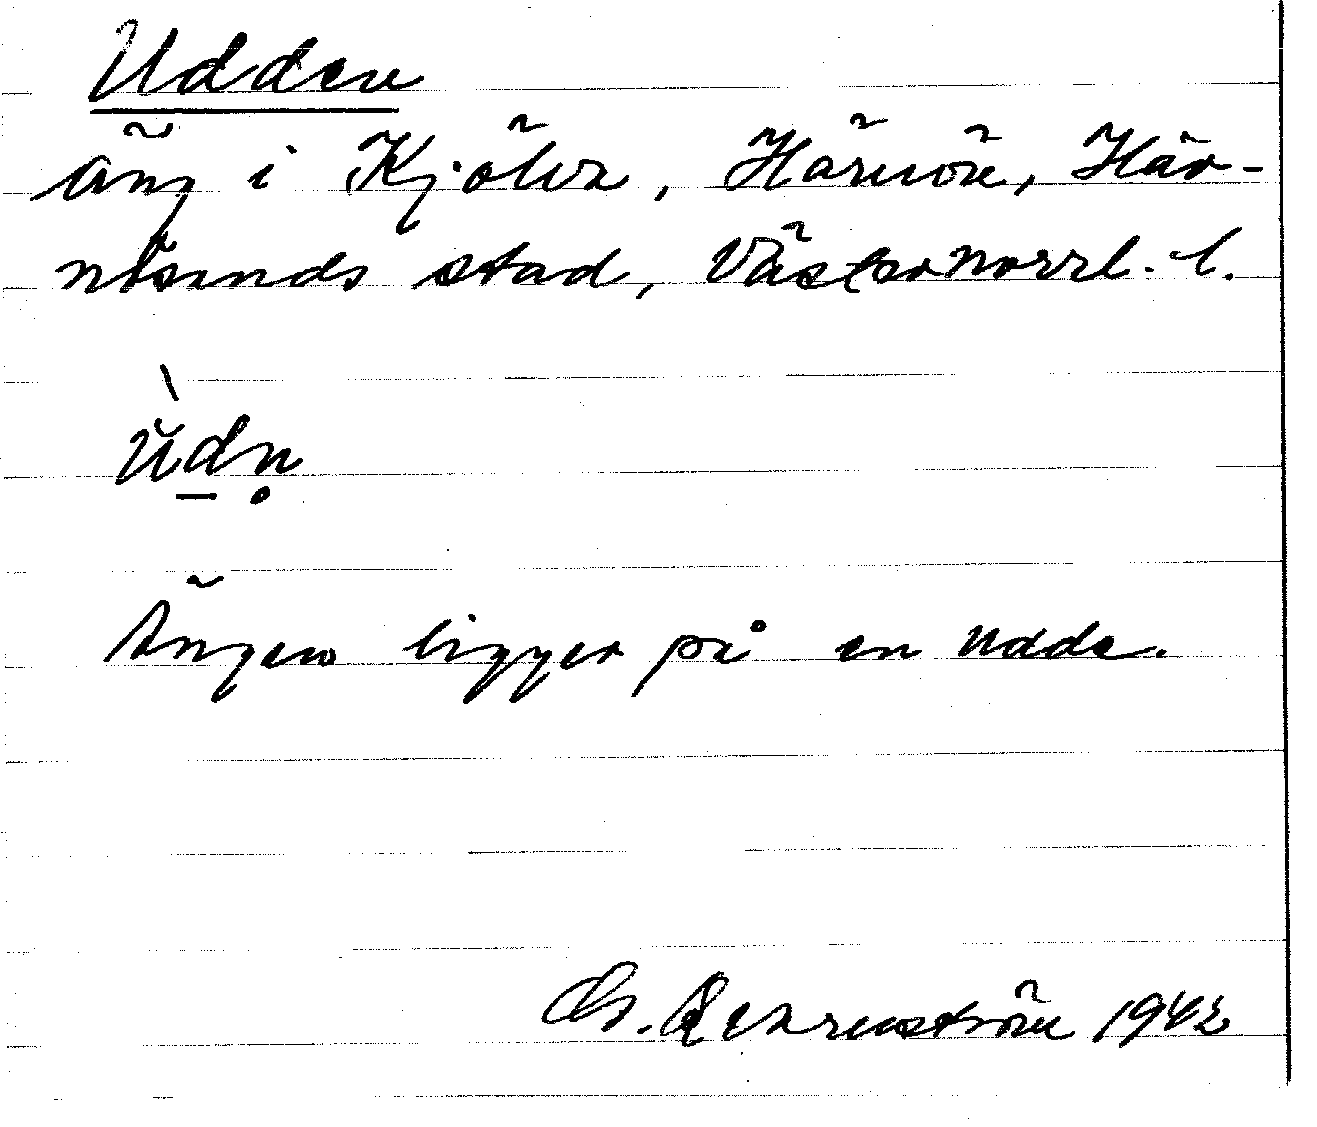 Udden
äng i Kjölva, Härnön, Här-
nösands stad, Västernorrl. l.
ùdn
Ängen ligger på en udde.
1942